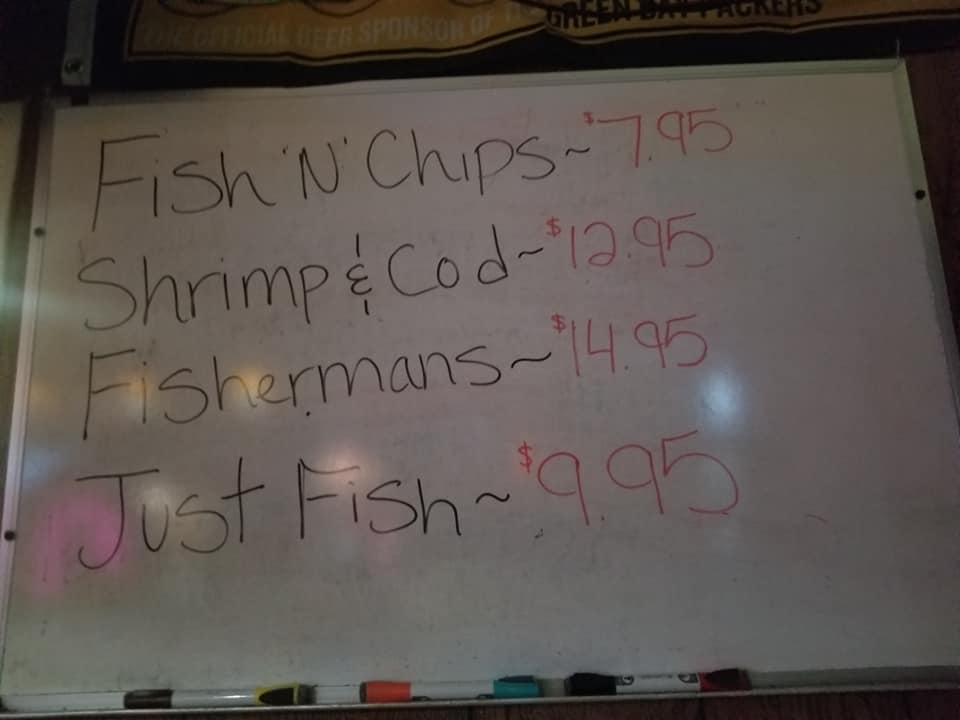 THE OFFICIAL BEER SPONSOR OF
GREEN BAY PACKERS
Fish 'N' Chips ~ $7.95
Shrimp & Cod ~ $12.95
Fishermans ~ $14.95
Just Fish ~ $9.95